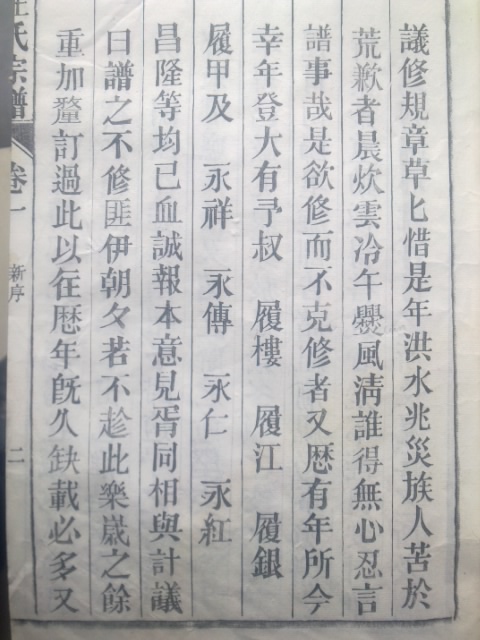 議修規章草匕惜是年洪水兆災族人苦於
荒歉者晨炊雲冷午爨風清誰得無心忍言
譜事哉是欲修而不克修者又歷有年所今
幸年登大有予叔 履樓 履江 履銀
履甲及 永祥 永傳 永仁 永紅
昌隆等均已血誠報本意見胥同相與計議
曰譜之不修匪伊朝夕若不趁此樂歲之餘
重加釐訂過此以往歷年既久缺載必多又
氏宗譜 卷一 新序 二